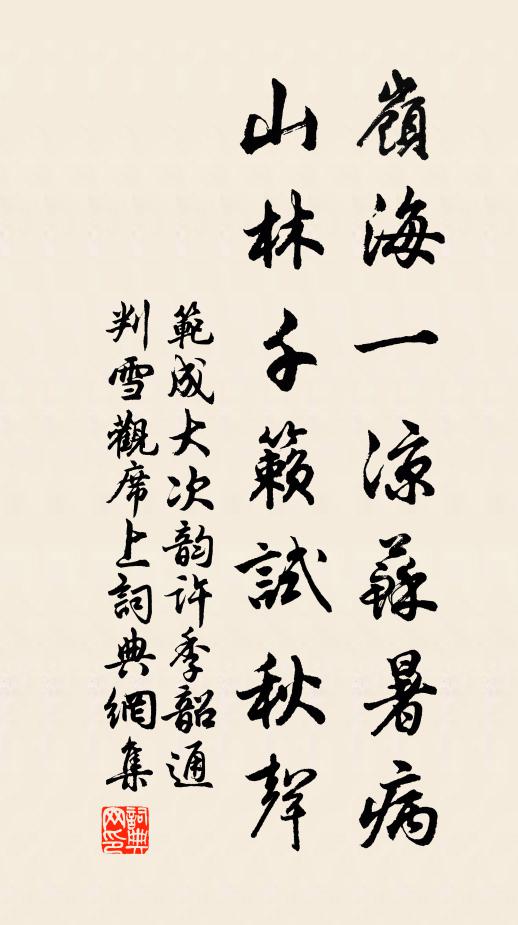 嶺海一涼蘇暑病
山林千籟試秋聲
範成大次韵許季韶通
判雪觀席上詞典網集
詞典
网印